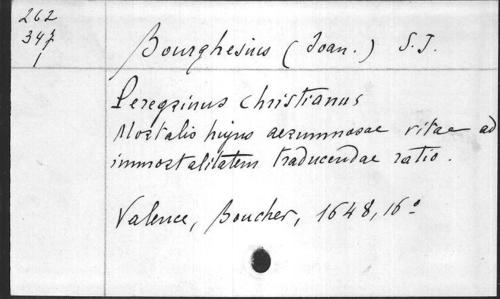 262
347
1
Bourghesius (Joan.) S.J.
Peregrinus Christianus
Mortalis hujus aerumnosae vitae ad
immortalitatem traducendae ratio.
Valence, Boucher, 1648, 16°